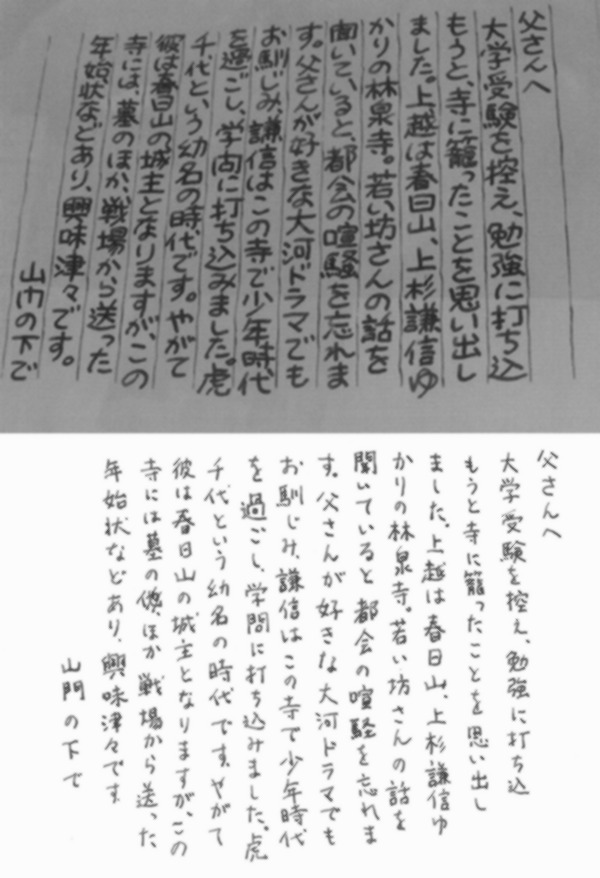 父さんへ
大学受験を控え、勉強に打ち込
もうと、寺に籠ったことを思い出し
ました。上越は春日山、上杉謙信ゆ
かりの林泉寺。若い坊さんの話を
聞いていると、都会の喧騒を忘れま
す。父さんが好きな大河ドラマでも
お馴じみ、謙信はこの寺で少年時代
を過ごし、学問に打ち込みました。虎
千代という幼名の時代です。やがて
彼は春日山の城主となりますが、この
寺には、墓のほか、戦場から送った
年始状などあり、興味津々です。
山門の下で
父さんへ
大学受験を控え、勉強に打ち込
もうと寺に籠ったことを思い出し
ました。上越は春日山、上杉謙信ゆ
かりの林泉寺。若い坊さんの話を
聞いていると都会の喧騒を忘れま
す。父さんが好きな大河ドラマでも
お馴じみ、謙信はこの寺で少年時代
を過ごし、学問に打ち込みました。虎
千代という幼名の時代です。やがて
彼は春日山の城主となりますが、この
寺には墓の他、ほか戦場から送った
年始状などあり、興味津々です
山門の下で